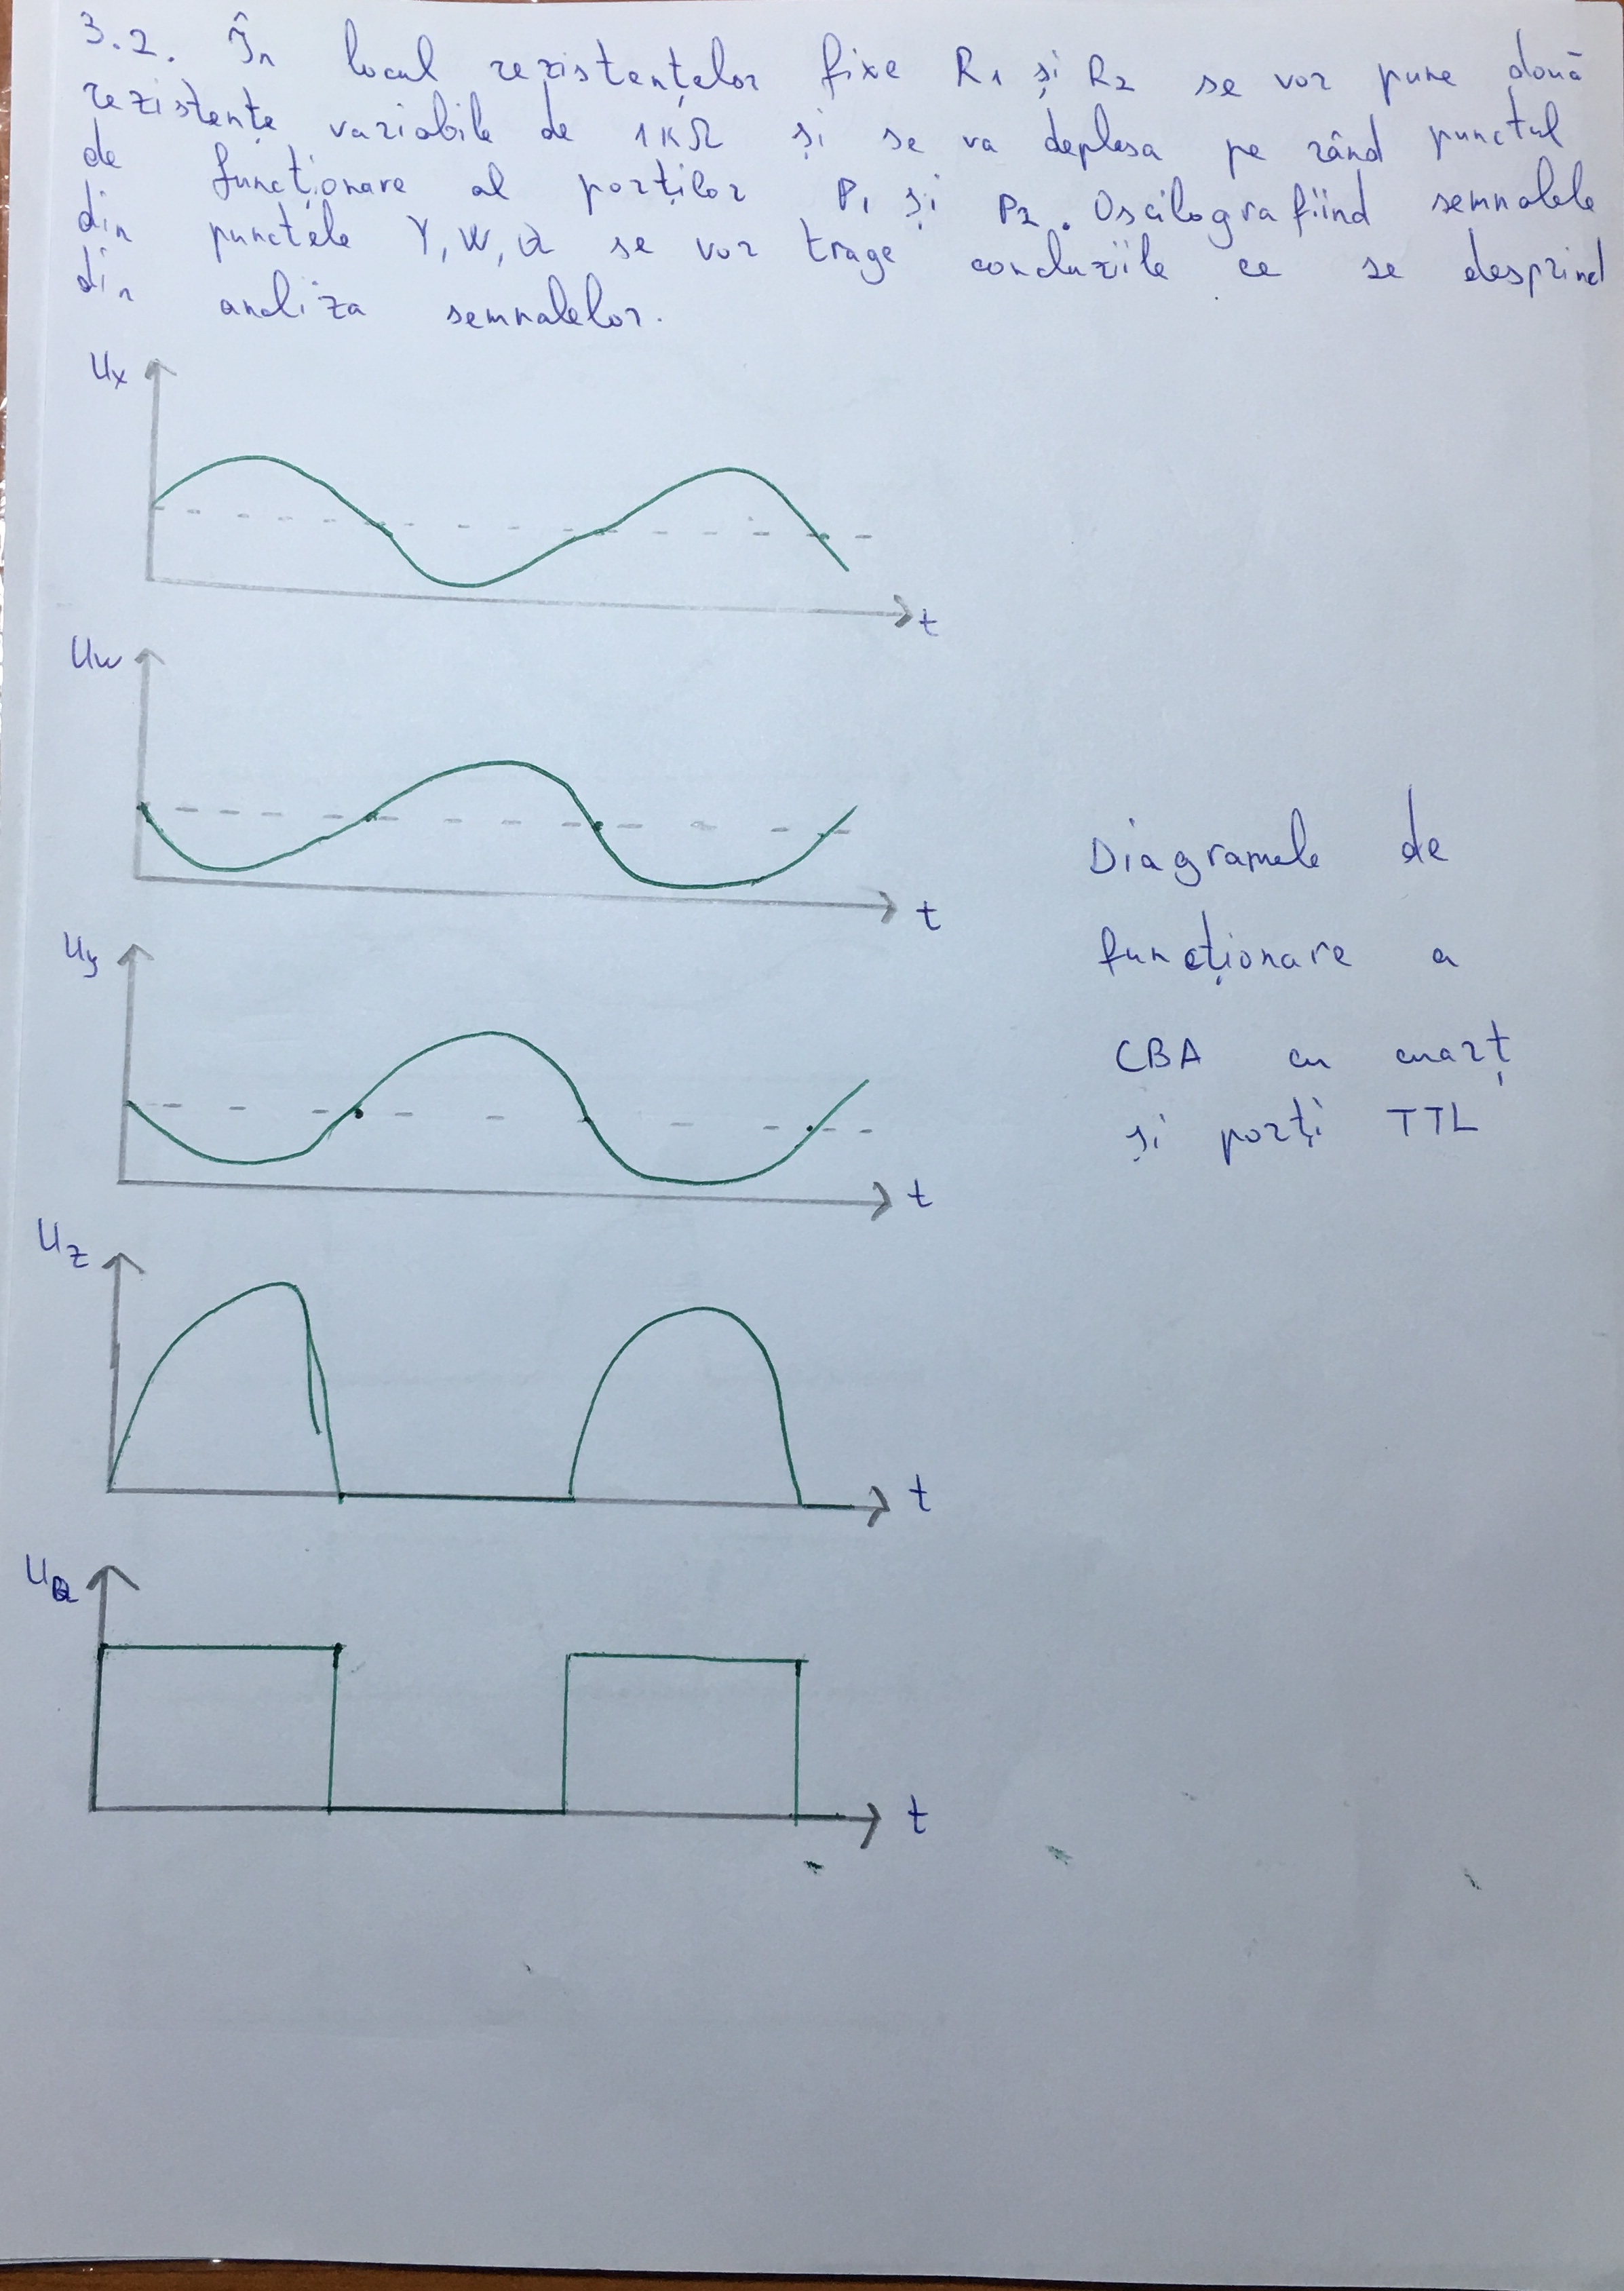 3.2. În locul rezistențelor fixe R1 și R2 se vor pune două
rezistențe variabile de 1KΩ și se va deplasa pe rând punctul
de funcționare al porților P1 și P2. Oscilografiind semnalele
din punctele Y, W, Q se vor trage concluziile ce se desprind
din analiza semnalelor.
Ux
t
Uw
t
Diagramele de
funcționare a
CBA cu cuarț
și porți TTL
Uy
t
Uz
t
UQ
t